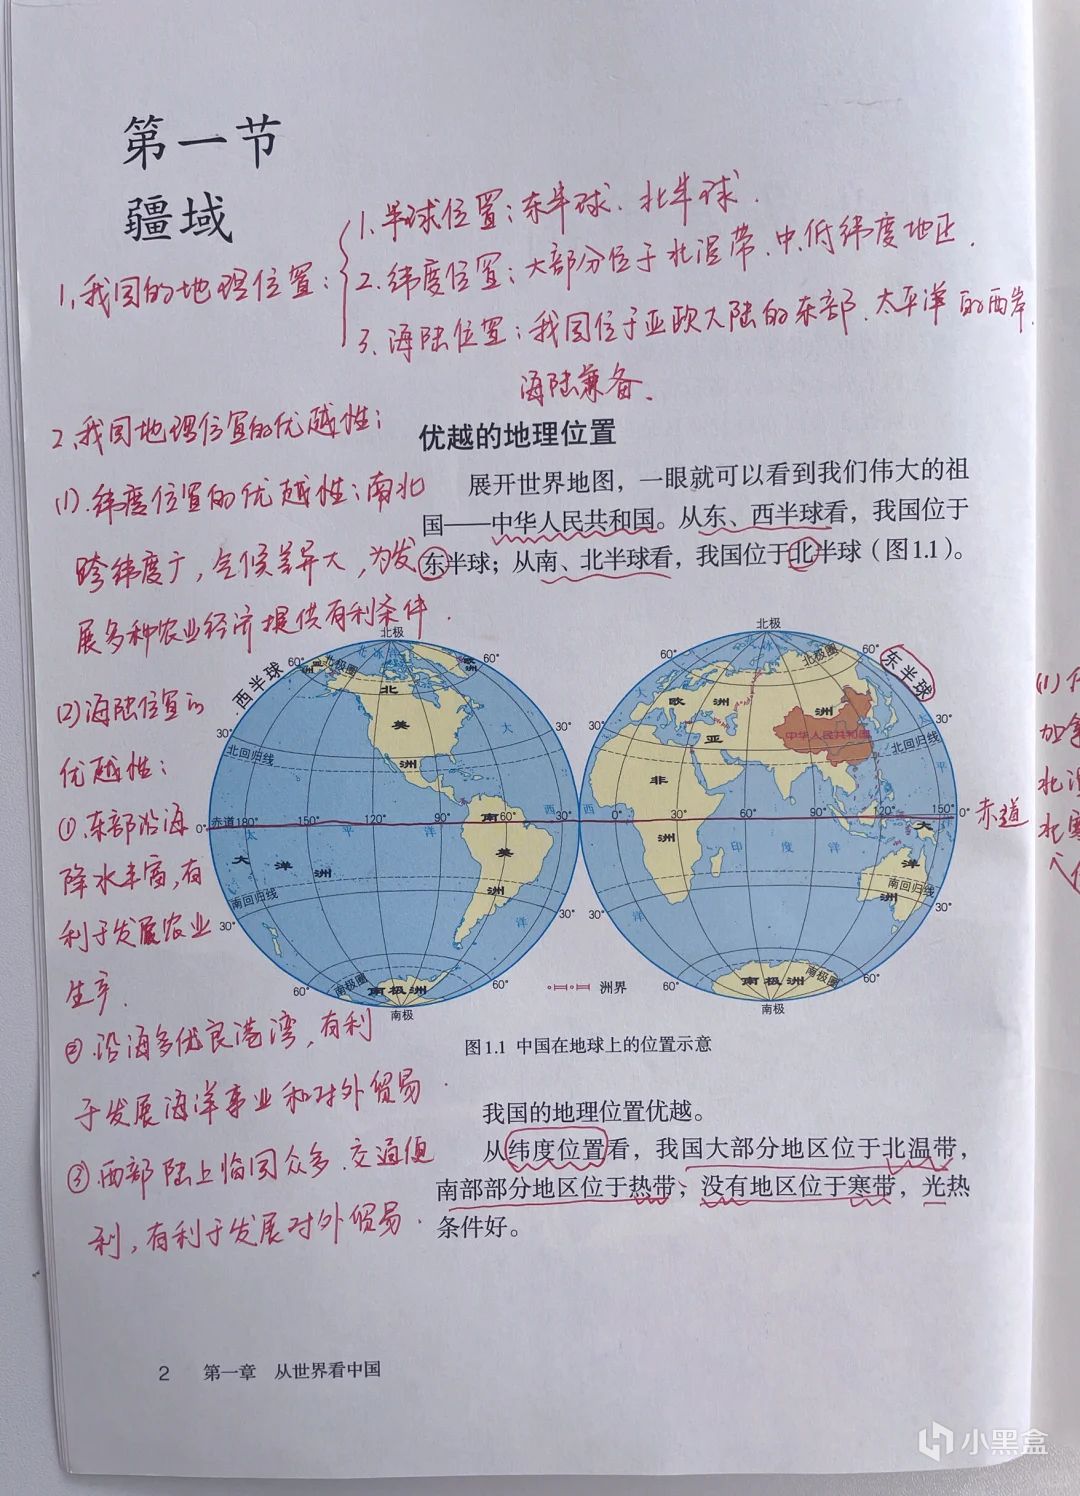 第一节
疆域
1.我国的地理位置:
1.半球位置:东半球、北半球.
2.纬度位置:大部分位于北温带、中、低纬度地区.
3.海陆位置:我国位于亚欧大陆的东部、太平洋的西岸.
海陆兼备.
2.我国地理位置的优越性:
(1).纬度位置的优越性:南北
跨纬度广,气候差异大,为发
展多种农业经济提供有利条件.
(2)海陆位置的
优越性:
①.东部沿海
降水丰富,有
利于发展农业
生产.
②.沿海多优良港湾,有利
于发展海洋事业和对外贸易.
③.西部陆上临国众多、交通便
利,有利于发展对外贸易.
优越的地理位置
展开世界地图,一眼就可以看到我们伟大的祖
国——中华人民共和国。从东、西半球看,我国位于
东半球;从南、北半球看,我国位于北半球(图1.1)。
西半球
北极
北冰洋
北极圈
60°
60°
欧洲
亚洲
北美洲
大西洋
30°
30°
北回归线
太平洋
0°
赤道
180°
150°
120°
90°
60°
南美洲
大洋洲
南回归线
30°
30°
60°
60°
南极圈
南极洲
南极
东半球
北极
北冰洋
北极圈
60°
60°
大西洋
欧洲
亚洲
中华人民共和国
30°
30°
北回归线
太平洋
非洲
0°
30°
60°
90°
120°
150°
0°
赤道
印度洋
大洋洲
南回归线
30°
30°
60°
60°
南极圈
南极洲
南极
洲界
图1.1 中国在地球上的位置示意
我国的地理位置优越。
从纬度位置看,我国大部分地区位于北温带,
南部部分地区位于热带,没有地区位于寒带,光热
条件好。
2 第一章 从世界看中国
(1)
加拿
小黑盒